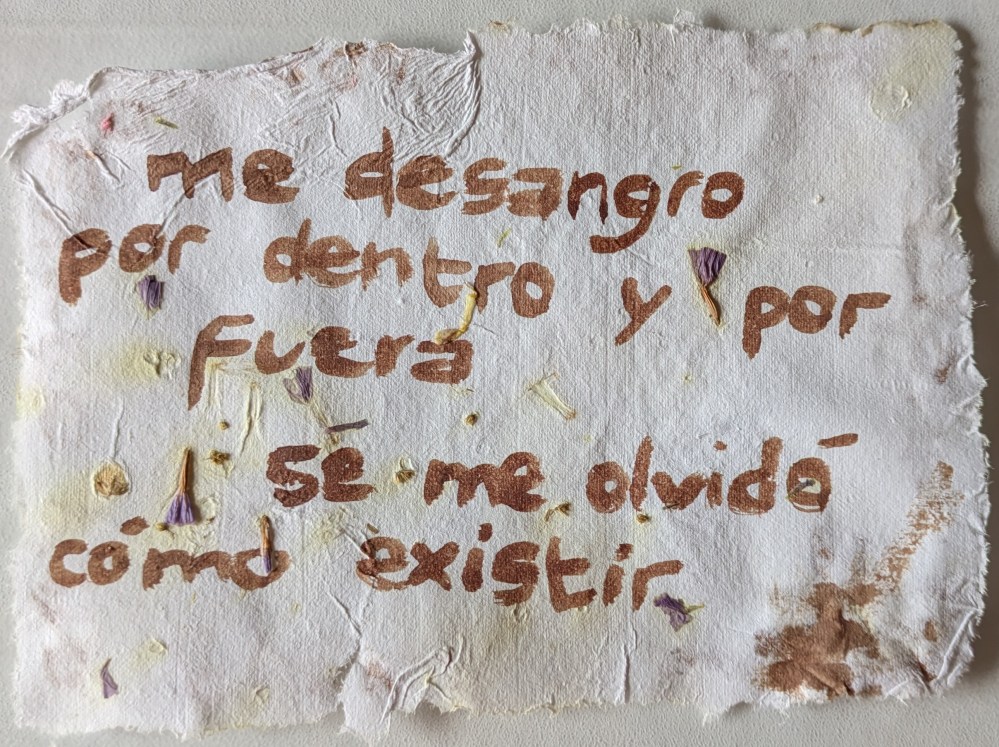 me desangro
por dentro y por
fuera
se me olvidó
cómo existir